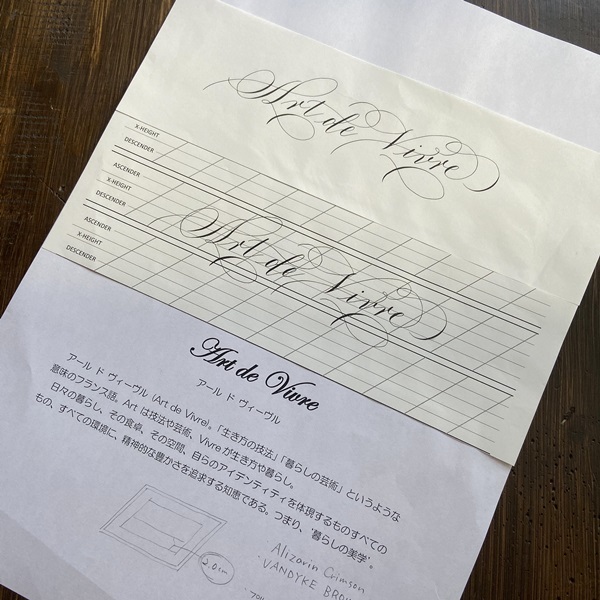 Art de Vivre
X-HEIGHT
DESCENDER
ASCENDER
X-HEIGHT
DESCENDER
ASCENDER
X-HEIGHT
DESCENDER
Art de Vivre
Art de Vivre
アール ド ヴィーヴル
アール ド ヴィーヴル (Art de Vivre)。「生き方の技法」「暮らしの芸術」というような
意味のフランス語。Art は技法や芸術、Vivre が生き方や暮らし。
日々の暮らし、その食卓、その空間、自らのアイデンティティを体現するものすべての
もの、すべての環境に、精神的な豊かさを追求する知恵である。つまり、‘暮らしの美学’。
2.0cm
Alizarin Crimson
・VANDYKE BROW